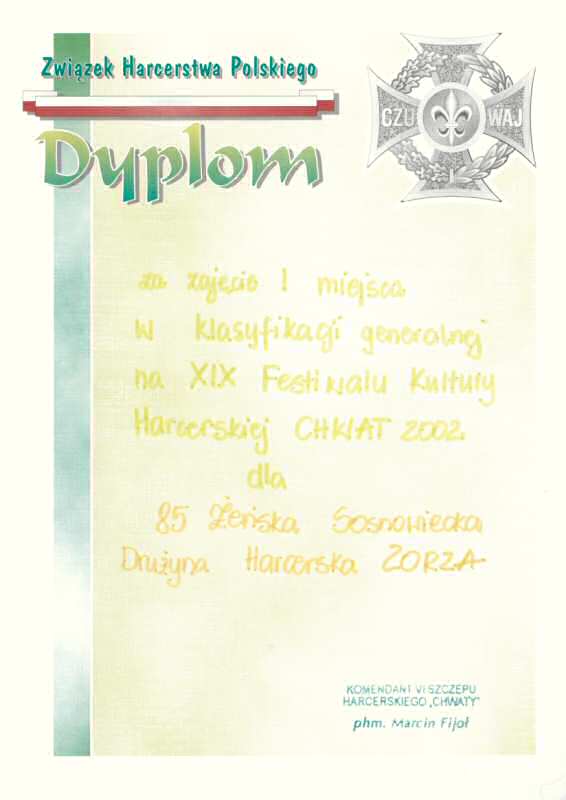 Związek Harcerstwa Polskiego
CZUWAJ
Dyplom
za zajęcie I miejsca
w klasyfikacji generalnej
na XIX Festiwalu Kultury
Harcerskiej CHWAT 2002
dla
85 Żeńska Sosnowiecka
Drużyna Harcerska ZORZA
KOMENDANT VI SZCZEPU
HARCERSKIEGO „CHWATY"
phm. Marcin Fijoł